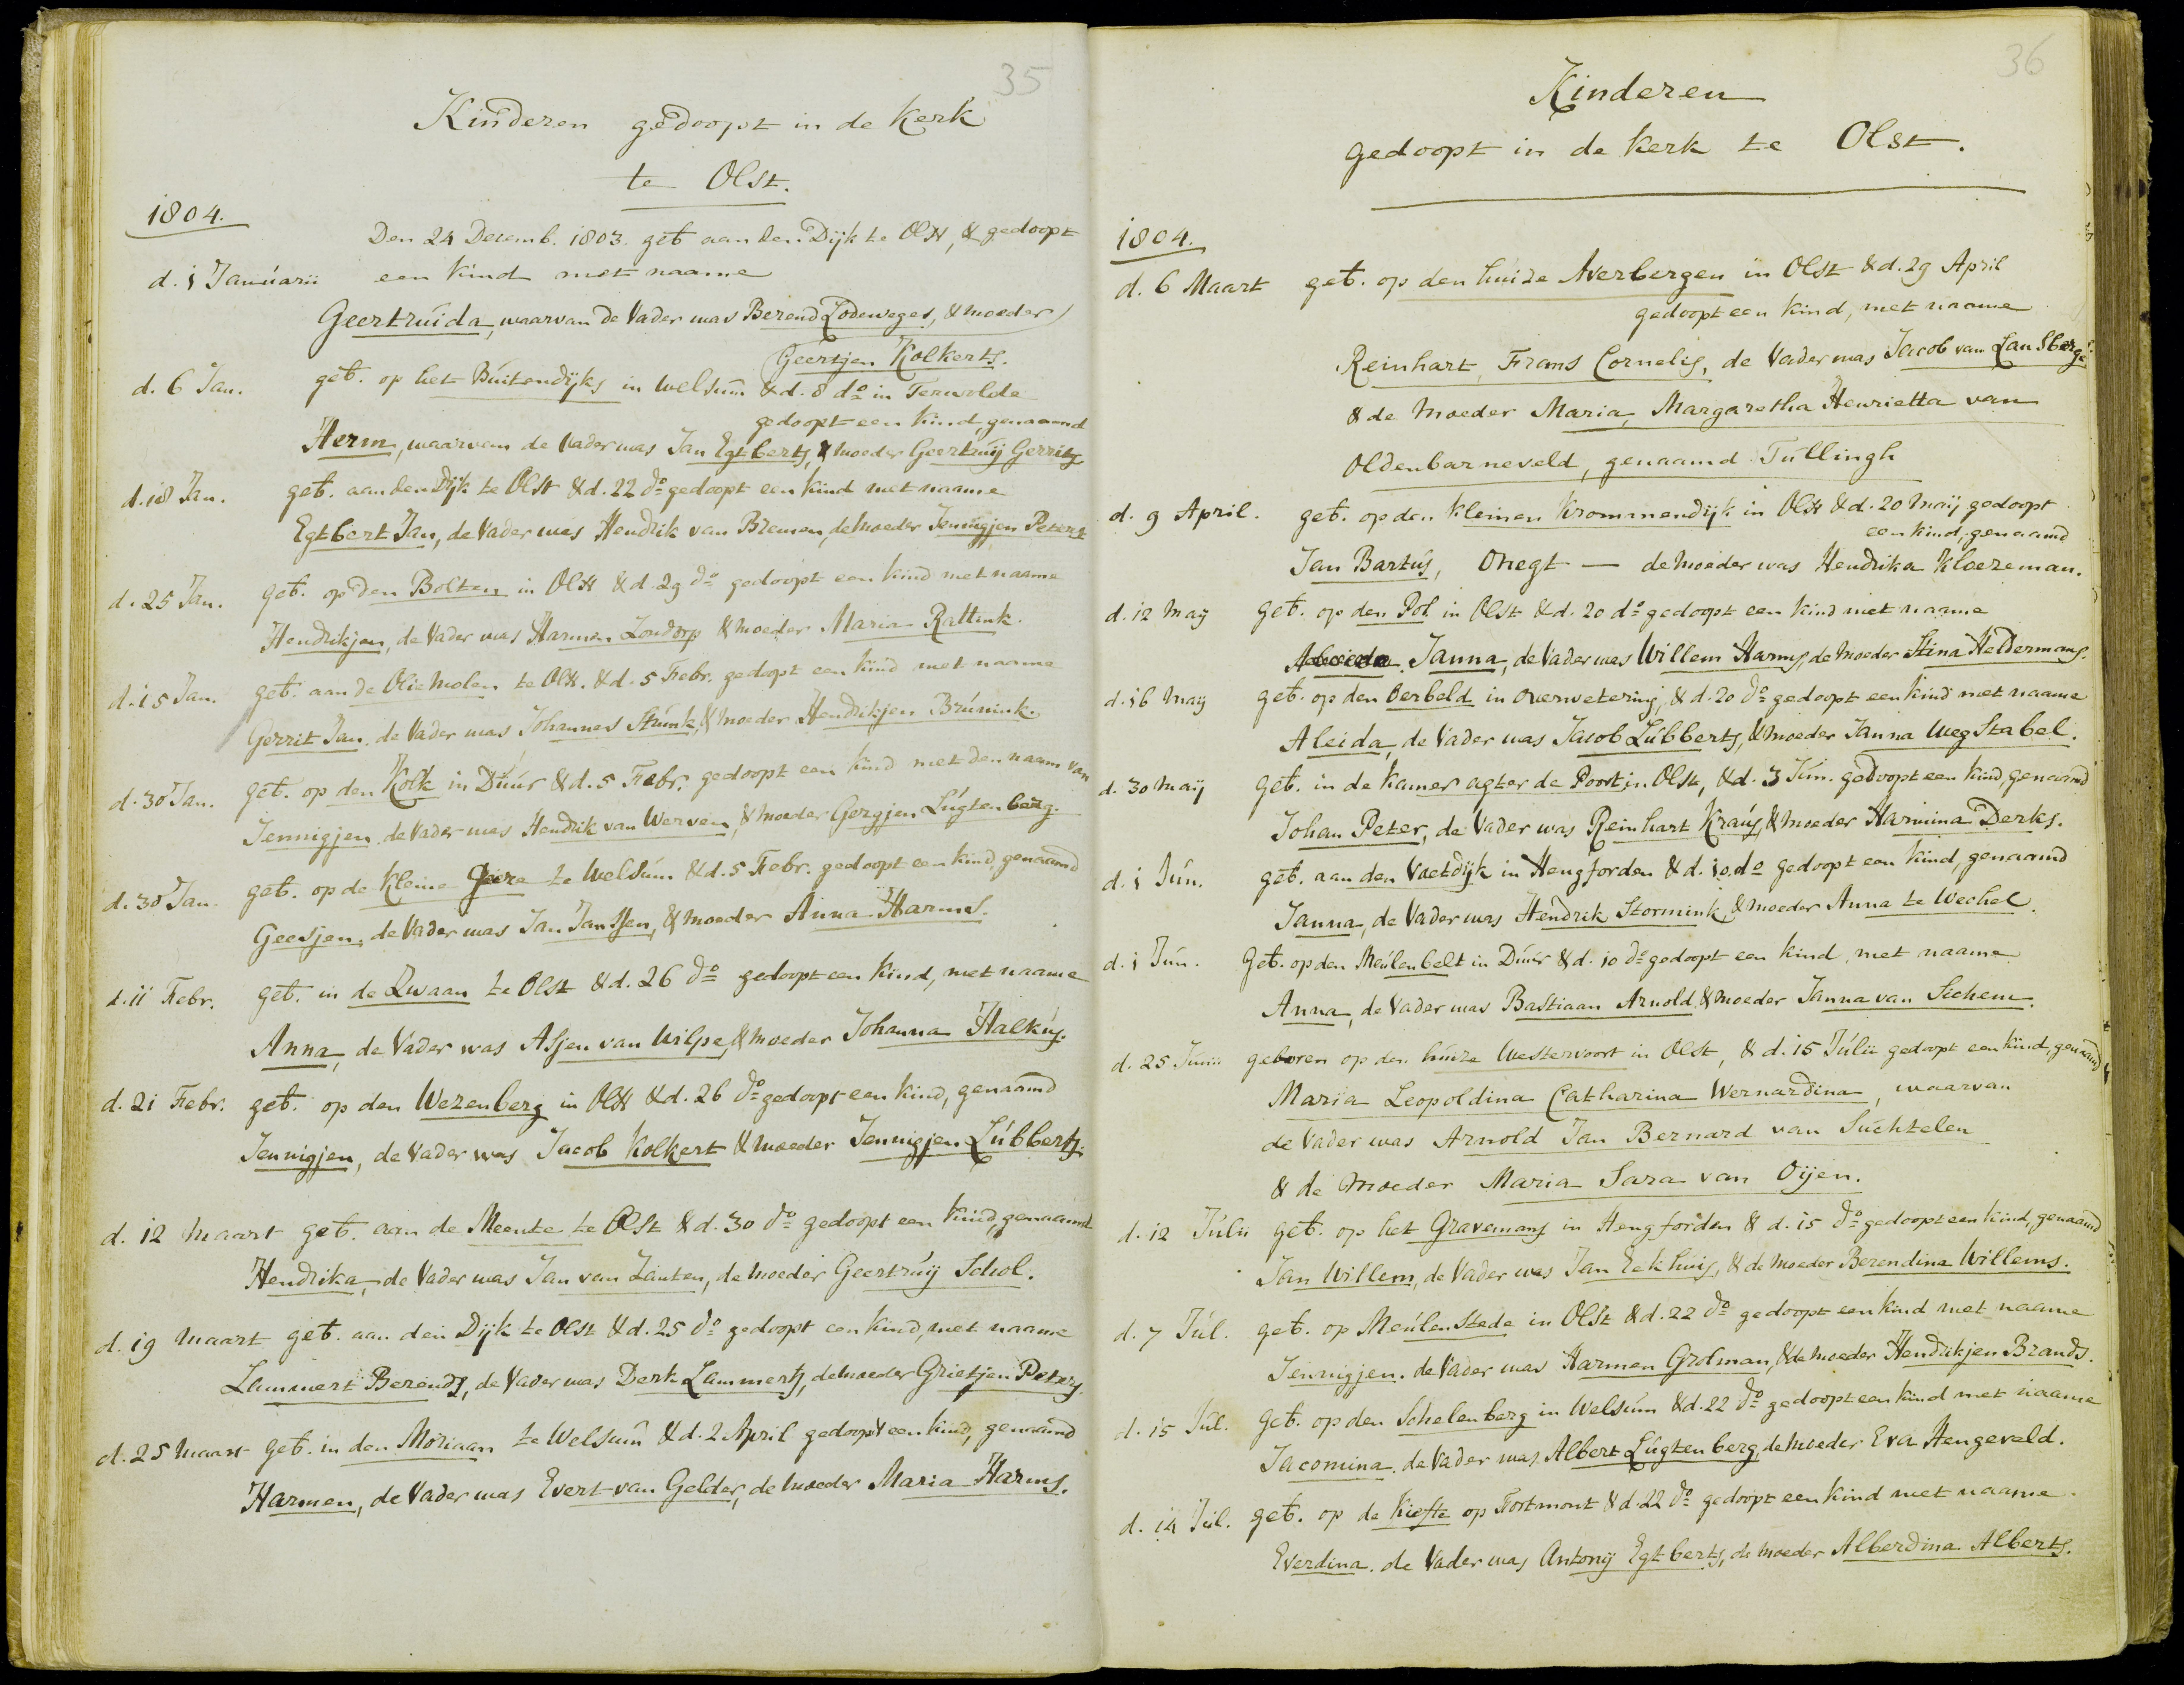 35
Kinderen gedoopt in de Kerk
te Olst.
1804.
Den 24 Decemb. 1803. geb aan den Dijk te Olst, & gedoopt
d. 1 Januarii een kind met naame
Geertruida, waarvan de Vader was Berend Lodeweges, & moeder
Geertjen Kolkerts.
d. 6 Jan. geb. op het Buitendijks in Welsum & d. 8 do in Terwolde
gedoopt een kind, genaamd
Herm, waarvan de Vader was Jan Egtberts, & moeder Geertruij Gerrits
d. 18 Jan. geb. aan den Dijk te Olst & d. 22 do gedoopt een kind met naame
Egtbert Jan, de Vader was Hendrik van Bremen, de moeder Jennigjen Peters
d. 25 Jan. geb. op den Bolten in Olst & d. 29 do gedoopt een kind met naame
Hendrikjen, de Vader was Harmen Zondorp & moeder Maria Rattink.
d. 15 Jan. geb. aan de Olie Molen te Olst. & d. 5 Febr. gedopt een kind met naame
Gerrit Jan, de Vader was Johannes Strunk, & moeder Hendrikjen Brunink.
d. 30 Jan. geb. op den Kolk in Duur & d. 5 Febr. gedoopt een kind met den naam van
Jennigjen, de Vader was Hendrik van Werven, & moeder Gergjen Lugtenberg.
d. 30 Jan. geb. op de Kleine Geere te Welsum & d. 5 Febr. gedoopt een kind, genaamd
Geesjen, de Vader was Jan Janssen, & moeder Anna Harms.
d. 11 Febr. geb. in de Zwaan te Olst & d. 26 do gedoopt een kind, met naame
Anna, de Vader was Asjen van Wilpe, & moeder Johanna Halkus.
d. 21 Febr. geb. op den Wezenberg in Olst & d. 26 do gedoopt een kind, genaamd
Jennigjen, de Vader was Jacob Kolkert & moeder Jennigjen Lubberts.
d. 12 Maart geb. aan de Meente te Olst & d. 30 do gedoopt een kind, genaamd
Hendrika, de Vader was Jan van Zanten, de moeder Geertruij Schol.
d. 19 Maart geb. aan den Dijk te Olst & d. 25 do gedoopt een kind, met naame
Lammert Berends, de Vader was Derk Lammerts, de moeder Grietjen Peters.
d. 25 Maart geb. in den Moriaan te Welsum & d. 2 April gedoopt een kind, genaamd
Harmen, de Vader was Evert van Gelder, de moeder Maria Harms.
36
Kinderen
gedoopt in de Kerk te Olst.
1804.
d. 6 Maart geb. op den huize Averbergen in Olst & d. 29 April
gedoopt een kind, met naame
Reinhart, Frans Cornelis, de Vader was Jacob van Lansberge
& de Moeder Maria, Margaretha Henrietta van
Oldenbarneveld, genaamd Tullingh
d. 9 April. geb. op den kleinen Krommendijk in Olst & d. 20 Maij gedoopt
een kind, genaamd
Jan Bartus, Onegt — de moeder was Hendrika Kloezeman.
d. 12 May geb. op den Pol in Olst & d. 20 do gedoopt een kind met naame
Janna, de Vader was Willem Harms, de moeder Stina Heldermans.
d. 16 Maij geb. op den Oerbeld in Overwetering, & d. 20 do gedoopt een kind met naame
Aleida, de Vader was Jacob Lubberts, & moeder Janna Weg Stabel.
d. 30 Maij geb. in de kamer agter de Poort in Olst, & d. 3 Jun. gedoopt een kind, genaamd
Johan Peter, de Vader was Reinhart Kraus, & moeder Harmina Derks.
d. 1 Jun. geb. aan den Vaetdijk in Hengforden & d. 10. do gedoopt een kind, genaamd
Janna, de Vader was Hendrik Stormink, & moeder Anna te Wechel.
d. 1 Jun. Geb. op den Meulenbelt in Duur & d. 10 do gedoopt een kind, met naame
Anna, de Vader was Bastiaan Arnold & moeder Janna van Sichem.
d. 25 Junii geboren op den huize Westervoort in Olst, & d. 15 Julii gedoopt een kind, genaamd
Maria Leopoldina Catharina Wernardina, waarvan
de Vader was Arnold Jan Bernard van Suchtelen
& de Moeder Maria Sara van Oijen.
d. 12 Julii geb. op het Gravemans in Hengforden & d. 15 do gedoopt een kind, genaamd
Jan Willem, de Vader was Jan Eekhuis, & de moeder Berendina Willems.
d. 7 Jul. geb. op Meulenstede in Olst & d. 22 do gedoopt een kind met naame
Jennigjen. de Vader was Harmen Grolman, & de moeder Hendrikjen Brands.
d. 15 Jul. Geb. op den Schelenberg in Welsum & d. 22 do gedoopt een kind met naame
Jacomina, de Vader was Albert Lugtenberg, de moeder Eva Hengeveld.
d. 14 Jul. geb. op de Kiefte op Fortmont & d. 22 do gedoopt een kind met naame
Everdina. de Vader was Antonij Egtberts, de moeder Alberdina Alberts.